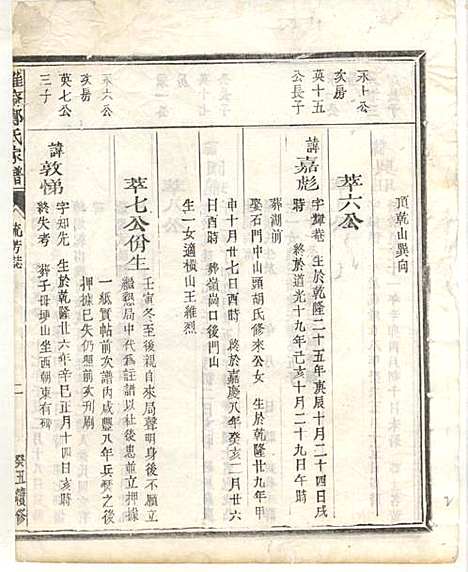 頂乾山巽向
永上公
亥房
英十五
公長子
萃六公
諱嘉彪
字輝菴 生於乾隆二十五年庚辰十月二十四日戌
時 終於道光十九年己亥十月二十九日午時
葬湖前
娶石門中山頭胡氏修來公女 生於乾隆廿九年甲
申十月廿七日酉時 終於嘉慶八年癸亥二月廿六
日酉時 葬嶺崗口後門山
生一女適橫山王維烈
永六公
亥房
英七公
三子
萃七公份生
壬寅冬至後親自來局聲明身後不願立
繼懇局中代為註譜以杜後患並立押據
一紙實帖前次譜內咸豐八年兵燹之後
押據已失仍照前次刊刷
諱敦悌
字知先 生於乾隆廿六年辛巳正月十四日亥時
終失考 葬子母埂山坐西朝東有碑
鄭氏家譜
流芳誌
二
癸丑續修